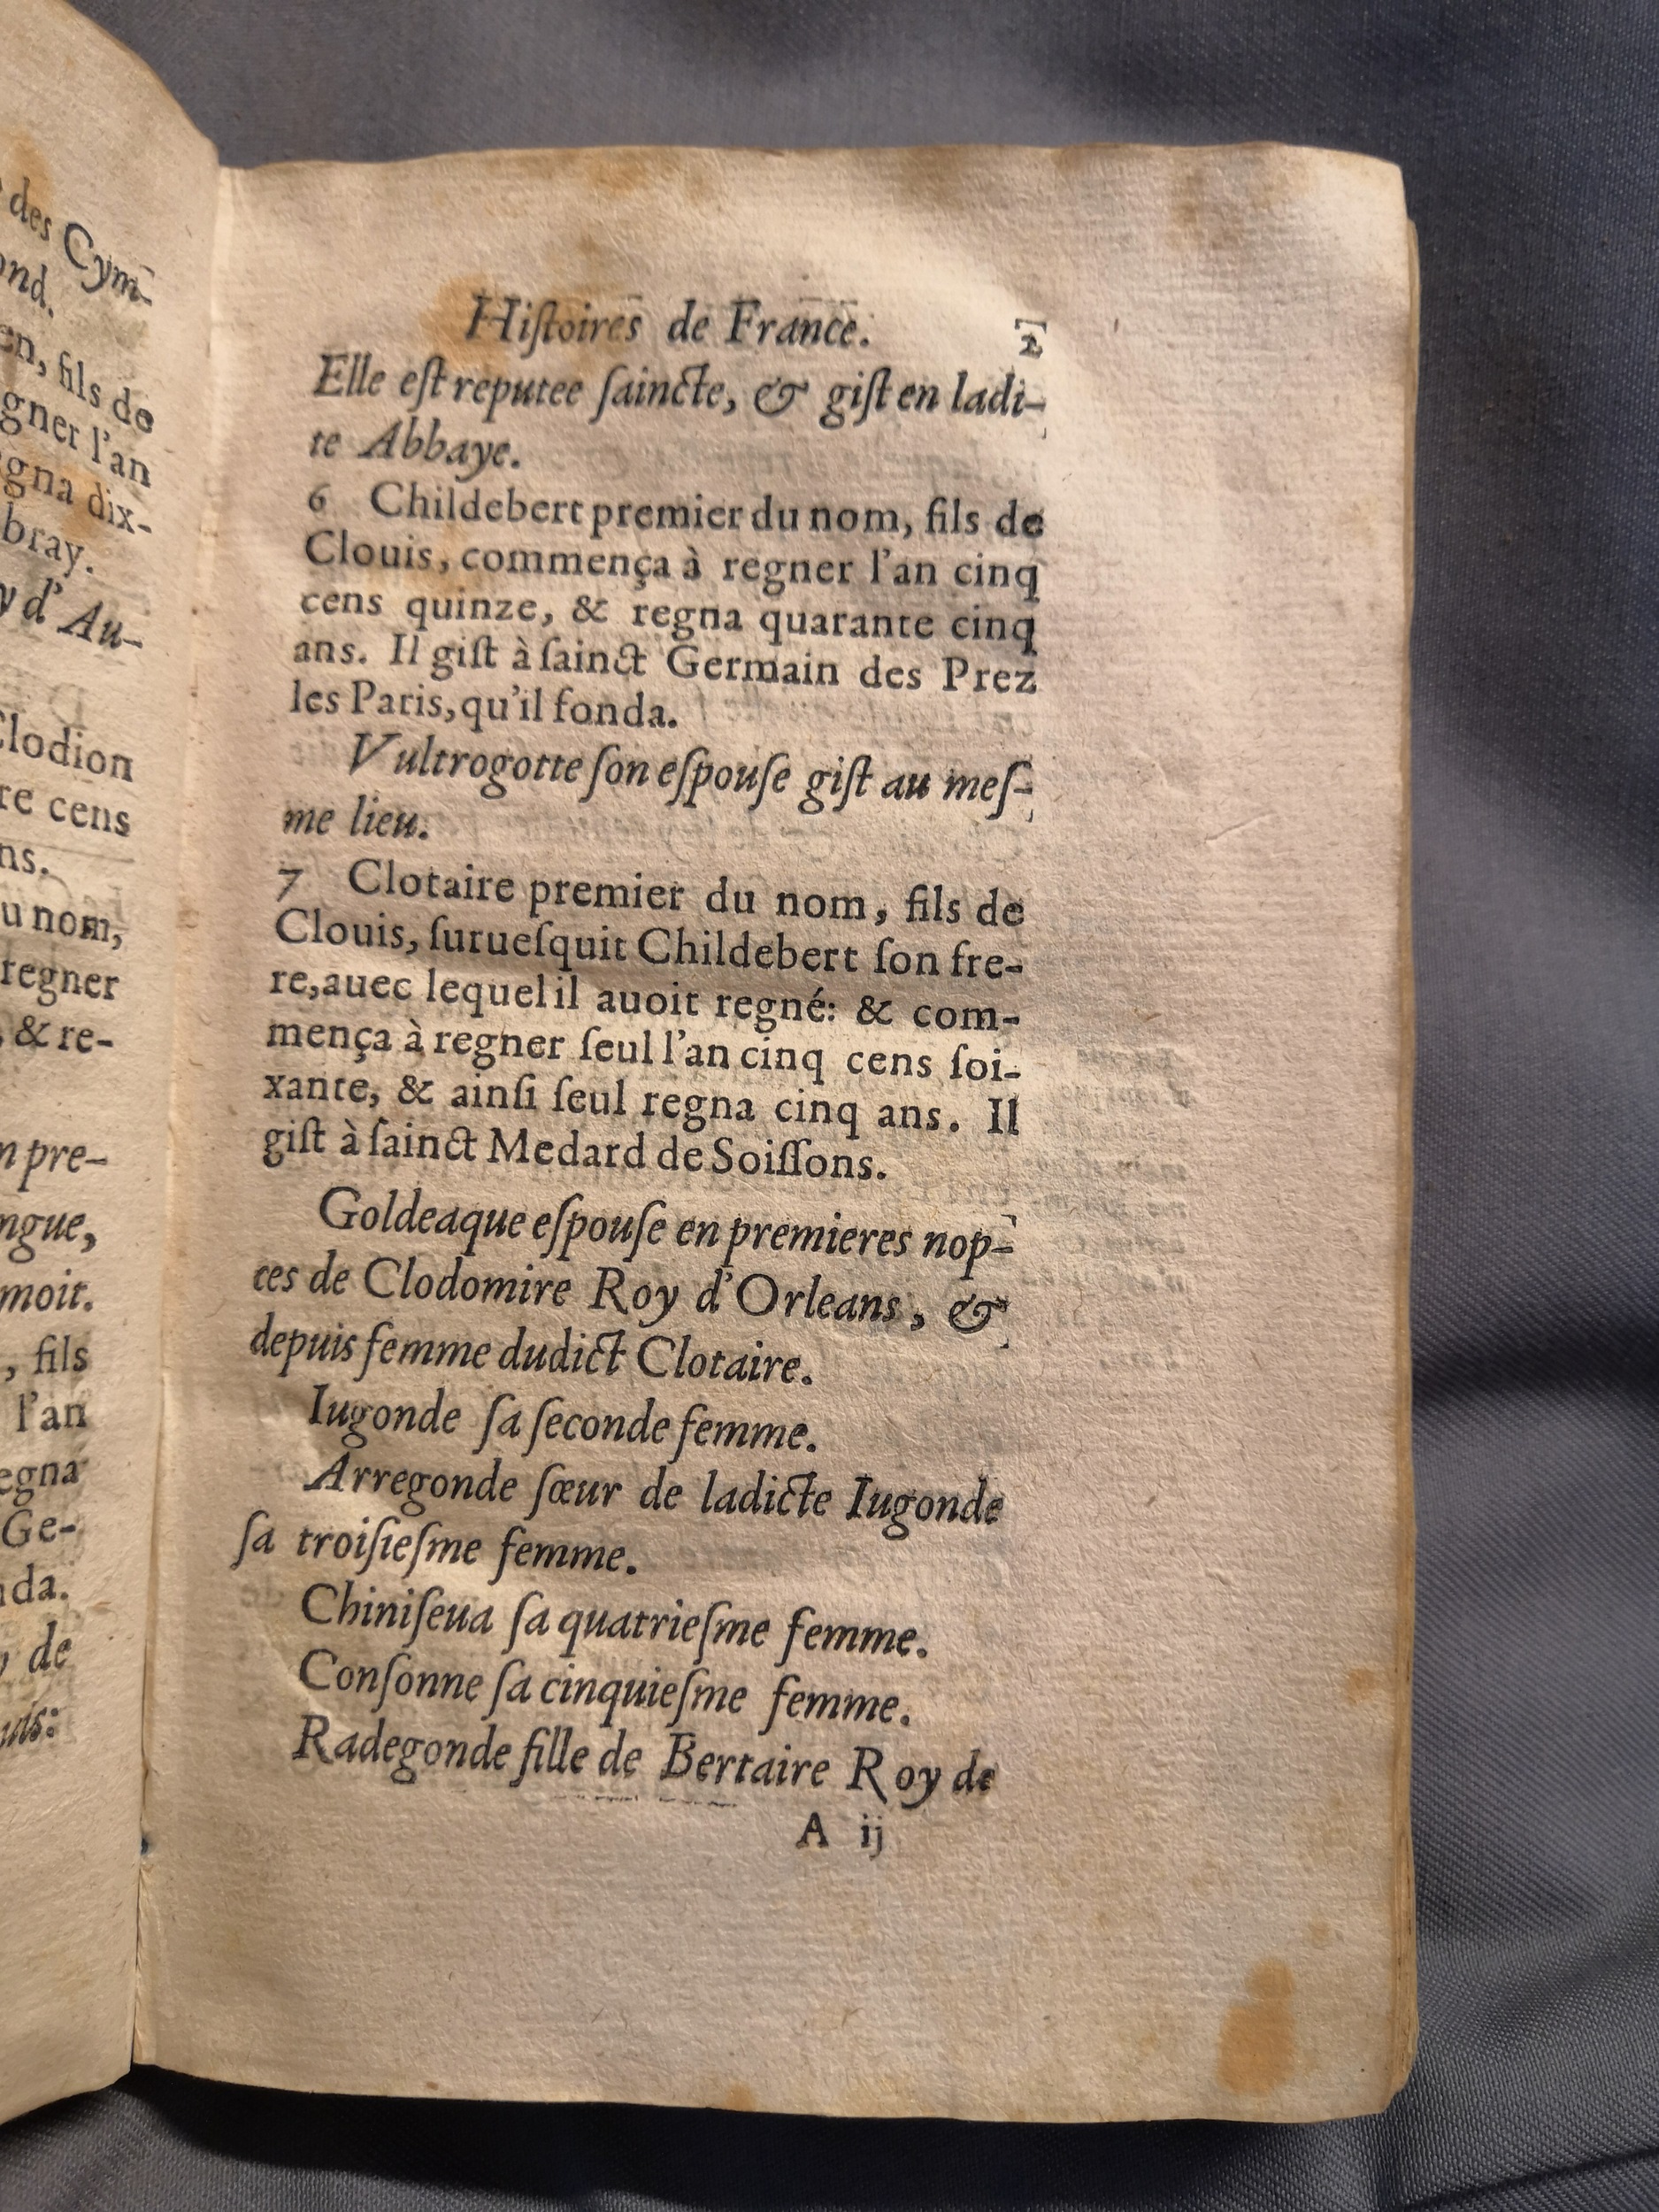 des Cym-
ond.
en, fils de
gner l'an
egna dix-
bray.
y d'Au-
Clodion
re cens
ns.
u nom,
regner
, & re-
n pre-
ngue,
moit.
, fils
l'an
egna
Ge-
nda.
de
uis:
Hiſtoires de France. 2
Elle eſt reputee ſaincte, & giſt en ladi-
te Abbaye.
6 Childebert premier du nom, fils de
Clouis, commença à regner l'an cinq
cens quinze, & regna quarante cinq
ans. Il giſt à ſainct Germain des Prez
les Paris, qu'il fonda.
Vultrogotte ſon eſpouſe giſt au meſ-
me lieu.
7 Clotaire premier du nom, fils de
Clouis, ſurueſquit Childebert ſon fre-
re, auec lequel il auoit regné: & com-
mença à regner ſeul l'an cinq cens ſoi-
xante, & ainſi ſeul regna cinq ans. Il
giſt à ſainct Medard de Soiſſons.
Goldeaque eſpouſe en premieres nop-
ces de Clodomire Roy d'Orleans, &
depuis femme dudict Clotaire.
Iugonde ſa ſeconde femme.
Arregonde ſœur de ladicte Iugonde
ſa troiſieſme femme.
Chiniſeua ſa quatrieſme femme.
Conſonne ſa cinquieſme femme.
Radegonde fille de Bertaire Roy de
A ij